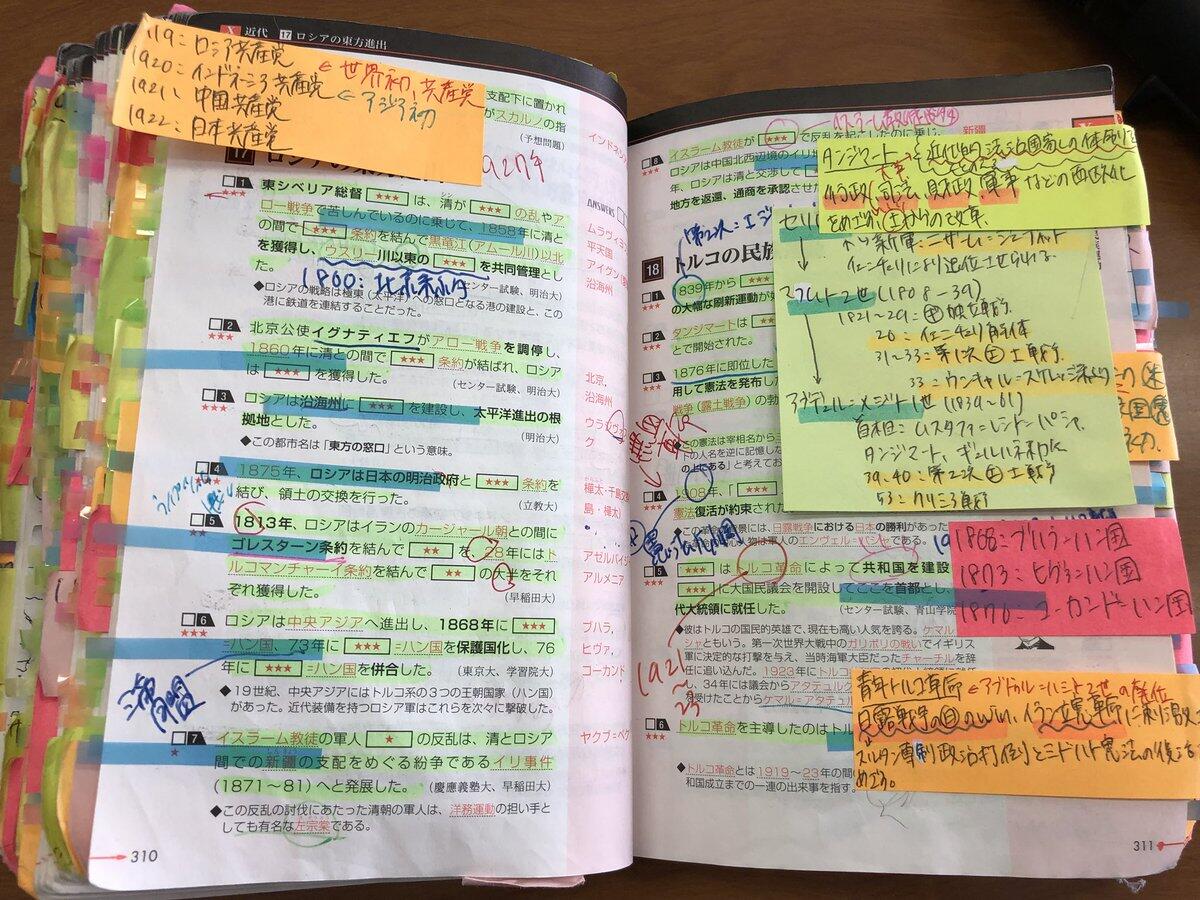 X 近代 17 ロシアの東方進出
1919：ロシア共産党
1920：インドネシア共産党 ← 世界初、共産党
1921：中国共産党 ← アジア初
1922：日本共産党
支配下に置かれ
がスカルノの指
(予想問題)
1927年
17
□1 東シベリア総督 ★★★ は、清が ★★★ の乱やア
★★★ ロー戦争で苦しんでいるのに乗じて、1858年に清と
の間で ★★★ 条約を結んで黒竜江(アムール川)以北
を獲得し、ウスリー川以東の ★★★ を共同管理とし
た。 (センター試験、明治大)
1860：北京条約
◆ロシアの戦略は極東(太平洋)への窓口となる港の建設と、この
港に鉄道を連結することだった。
□2 北京公使イグナティエフがアロー戦争を調停し、
★★★ 1860年に清との間で ★★★ 条約が結ばれ、ロシア
は ★★★ を獲得した。 (センター試験、明治大)
□3 ロシアは沿海州に ★★★ を建設し、太平洋進出の根
★★★ 拠地とした。 (明治大)
◆この都市名は「東方の窓口」という意味。
□4 1875年、ロシアは日本の明治政府と ★★★ 条約を
★★★ 結び、領土の交換を行った。 (立教大)
□5 1813年、ロシアはイランのカージャール朝との間に
★★ ゴレスターン条約を結んで ★★ を、28年にはト
ルコマンチャーイ条約を結んで ★★ の大半をそれ
ぞれ獲得した。 (早稲田大)
□6 ロシアは中央アジアへ進出し、1868年に ★★★
★★★ =ハン国、73年に ★★★ =ハン国を保護国化し、76
年に ★★★ =ハン国を併合した。 (東京大、学習院大)
◆19世紀、中央アジアにはトルコ系の3つの王朝国家(ハン国)
があった。近代装備を持つロシア軍はこれらを次々に撃破した。
□7 イスラーム教徒の軍人 ★ の反乱は、清とロシア
★ 間での新疆の支配をめぐる紛争であるイリ事件
(1871〜81)へと発展した。 (慶應義塾大、早稲田大)
◆この反乱の討伐にあたった清朝の軍人は、洋務運動の担い手と
しても有名な左宗棠である。
310
インドネシ
ANSWERS
ムラヴィヨ
平天国
アイグン
沿海州
北京、
沿海州
ウラ
ク
樺太・千島交
島・樺太)
アゼルバイジ
アルメニア
ブハラ、
ヒヴァ、
コーカンド
ヤクブ=ベグ
□8 イスラーム教徒が ★★★ で反乱を起こしたのに乗じ、
ロシアは中国北西辺境のイリ地
年、ロシアは清と交渉して
地方を返還、通商を承認させた
新疆
タンジマート → 近代的法治国家の体裁
行政、司法、財政、軍事などの西欧化
をめざす上からの改革。
18 トルコの民族
□1 1839年から ★★★
★★★ の大幅な刷新運動が
□2 タンジマートは ★★
★★★ とで開始された。
□3 1876年に即位した
★★★ 用して憲法を発布し
戦争(露土戦争)の勃
◆この憲法は宰相名から
下の人名を逆に記憶し
の上にある」と考えてお
□4 1908年、「
★★★ 憲法復活が約束された
景には、日露戦争における日本の勝利があった
物は軍人のエンヴェル=パシャである。
□5 ★★★ はトルコ革命によって共和国を建設
★★★ ★★★ に大国民議会を開設してここを首都とし、
代大統領に就任した。 (センター試験、青山学院
◆彼はトルコの国民的英雄で、現在も高い人気を誇る。ケマル=
シャともいう。第一次世界大戦中のガリポリの戦いでイギリス
軍に決定的な打撃を与え、当時海軍大臣だったチャーチルを辞
任に追い込んだ。1923年にトルコ
し、34年には議会からアタテュルク
を受けたことからケマル=アタテュ
1921〜23
□6 トルコ革命を主導したのはトル
★★★
◆トルコ革命とは1919〜23年の間
和国成立までの一連の出来事を指す。
311
新軍：ニザーム=ジェディット
イェニチェリにより退位させられる。
マフムト2世(1808-39)
1821〜29：独立戦争
26：イェニチェリ解体
31〜33：第1次 土戦争
33：ウンキャル=スケレッシ条約
アブデュル=メジト1世(1839〜61)
首相：ムスタファ=レシト=パシャ
タンジマート、ギュルハネ勅令
39〜40：第2次 土戦争
53：クリミア戦争
1868：ブハラ=ハン国
1873：ヒヴァ=ハン国
1876：コーカンド=ハン国
青年トルコ革命 ← アブドゥル=ハミト2世の
日露戦争の日の勝利、イラン立憲革命に刺激
スルタン専制政治打倒とミドハト憲法の復活を
めざす。